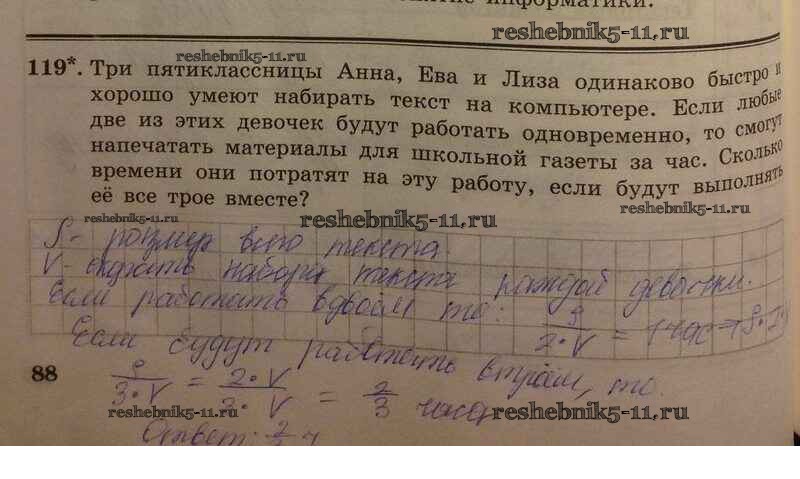 понятие информатики.
reshebnik5-11.ru
119*. Три пятиклассницы Анна, Ева и Лиза одинаково быстро и
хорошо умеют набирать текст на компьютере. Если любые
две из этих девочек будут работать одновременно, то смогут
напечатать материалы для школьной газеты за час. Сколько
времени они потратят на эту работу, если будут выполнять
её все трое вместе?
reshebnik5-11.ru reshebnik5-11.ru reshebnik5-11.ru
S - размер всего текста.
V - скорость набора текста каждой девочки.
Если работать вдвоём то: S/2·V = 1 час
Если будут работать втроём, то
88
S/3·V = 2·V/3·V = 2/3 часа
reshebnik5-11.ru reshebnik5-11.ru
Ответ: 2/3 ч